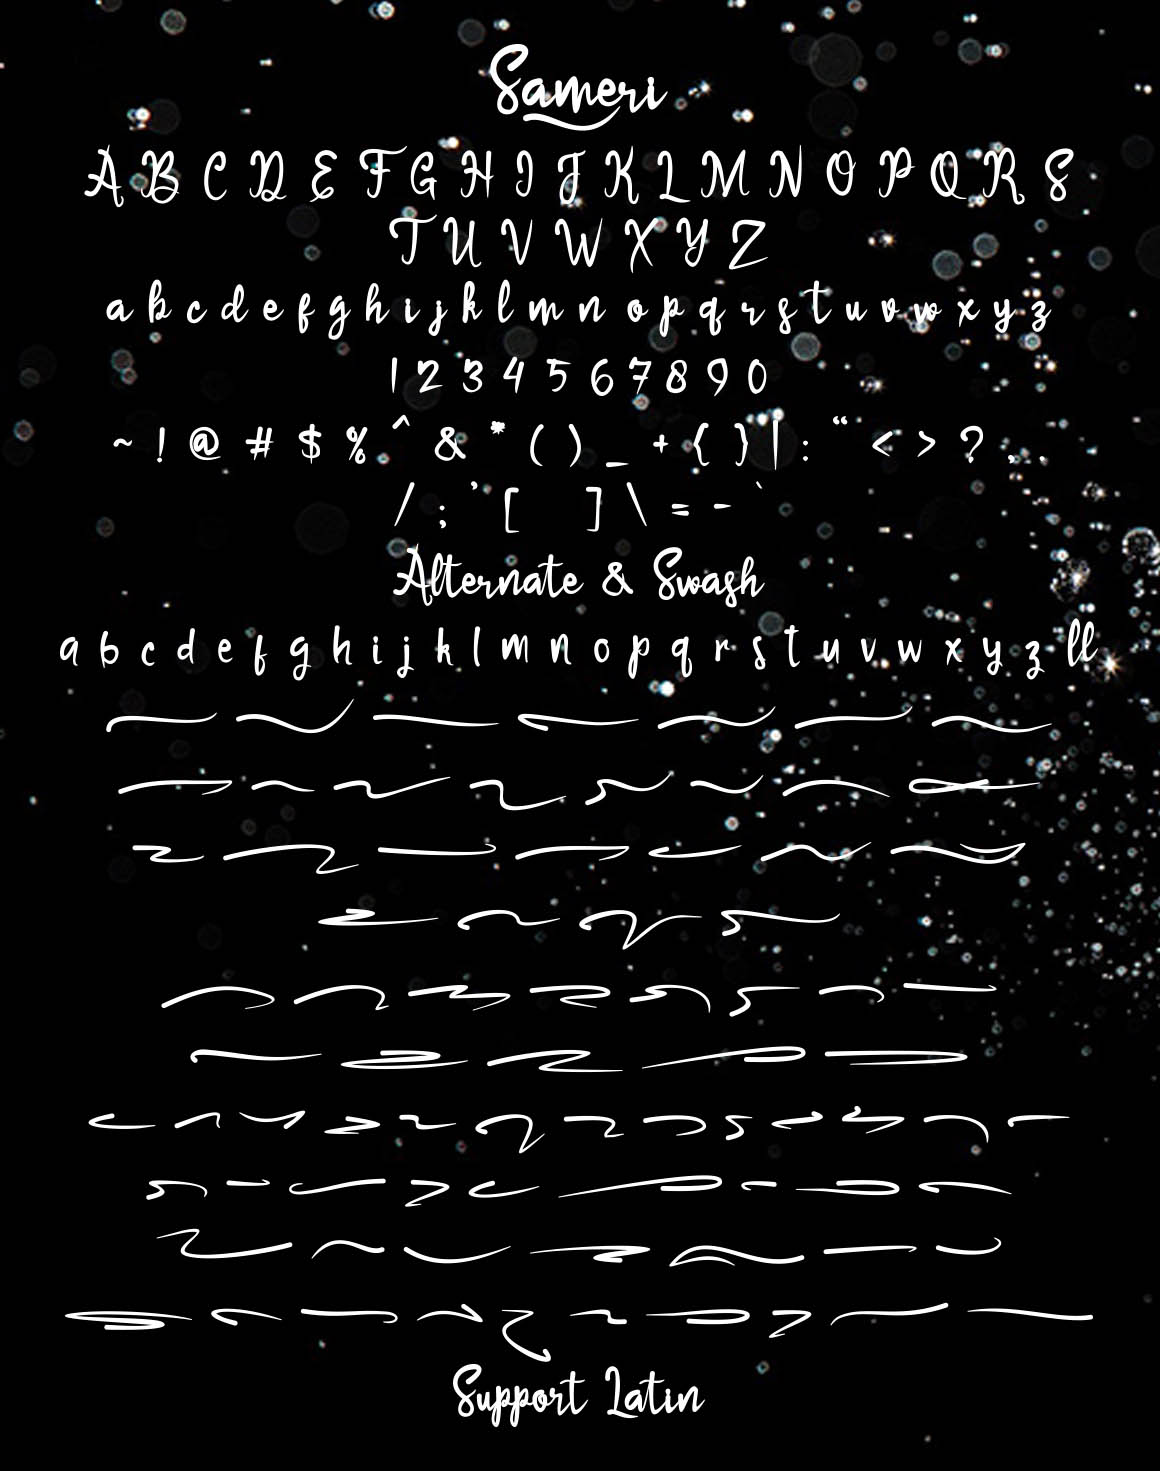 Sameri
A B C D E F G H I J K L M N O P Q R S
T U V W X Y Z
a b c d e f g h i j k l m n o p q r s t u v w x y z
1 2 3 4 5 6 7 8 9 0
~ ! @ # $ % ^ & * ( ) _ + { } | : “ < > ? , .
/ ; ’ [ ] \ = - `
Alternate & Swash
a b c d e f g h i j k l m n o p q r s t u v w x y z ll
Support Latin